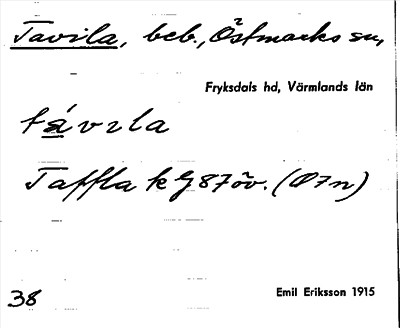 Tavila, beb., Östmarks sn,
Fryksdals hd, Värmlands län
távila
Taffla k G 87 öv. (Ö7n)
38
Emil Eriksson 1915